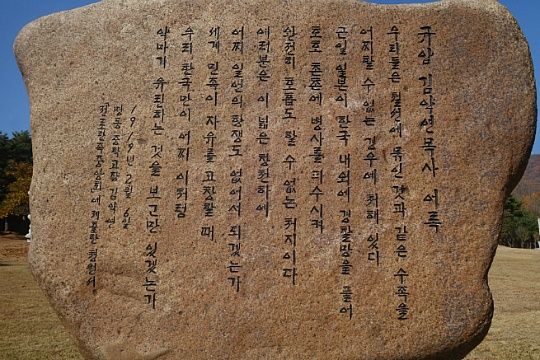 규암 김약연목사 어록
우리들은 철선에 묶인것과 같은 수족을
어찌할 수 없는 경우에 처해 있다
근일 일본이 한국 내외에 경찰망을 풀어
호호 촌촌에 병사를 파수시켜
한 호흡도 할 수 없는 처지이다
여러분은 이 넓은 청천하에
어찌 일언의 항쟁도 없어서 되겠는가
세계 민족이 자유를 고창할 때
우리 한국만이 어찌 이처럼
야만기 유린하는 것을 보고만 있겠는가
1919년 2월 6일
명동중학교장 김약연